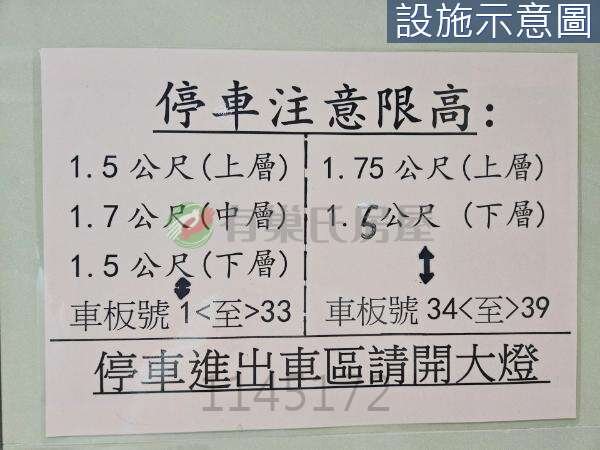 設施示意圖
停車注意限高:
1.5公尺(上層)
1.7公尺(中層)
1.5公尺(下層)
車板號1<至>33
1.75公尺(上層)
1.5公尺(下層)
車板號34<至>39
停車進出車區請開大燈
有巢氏房屋
1145172